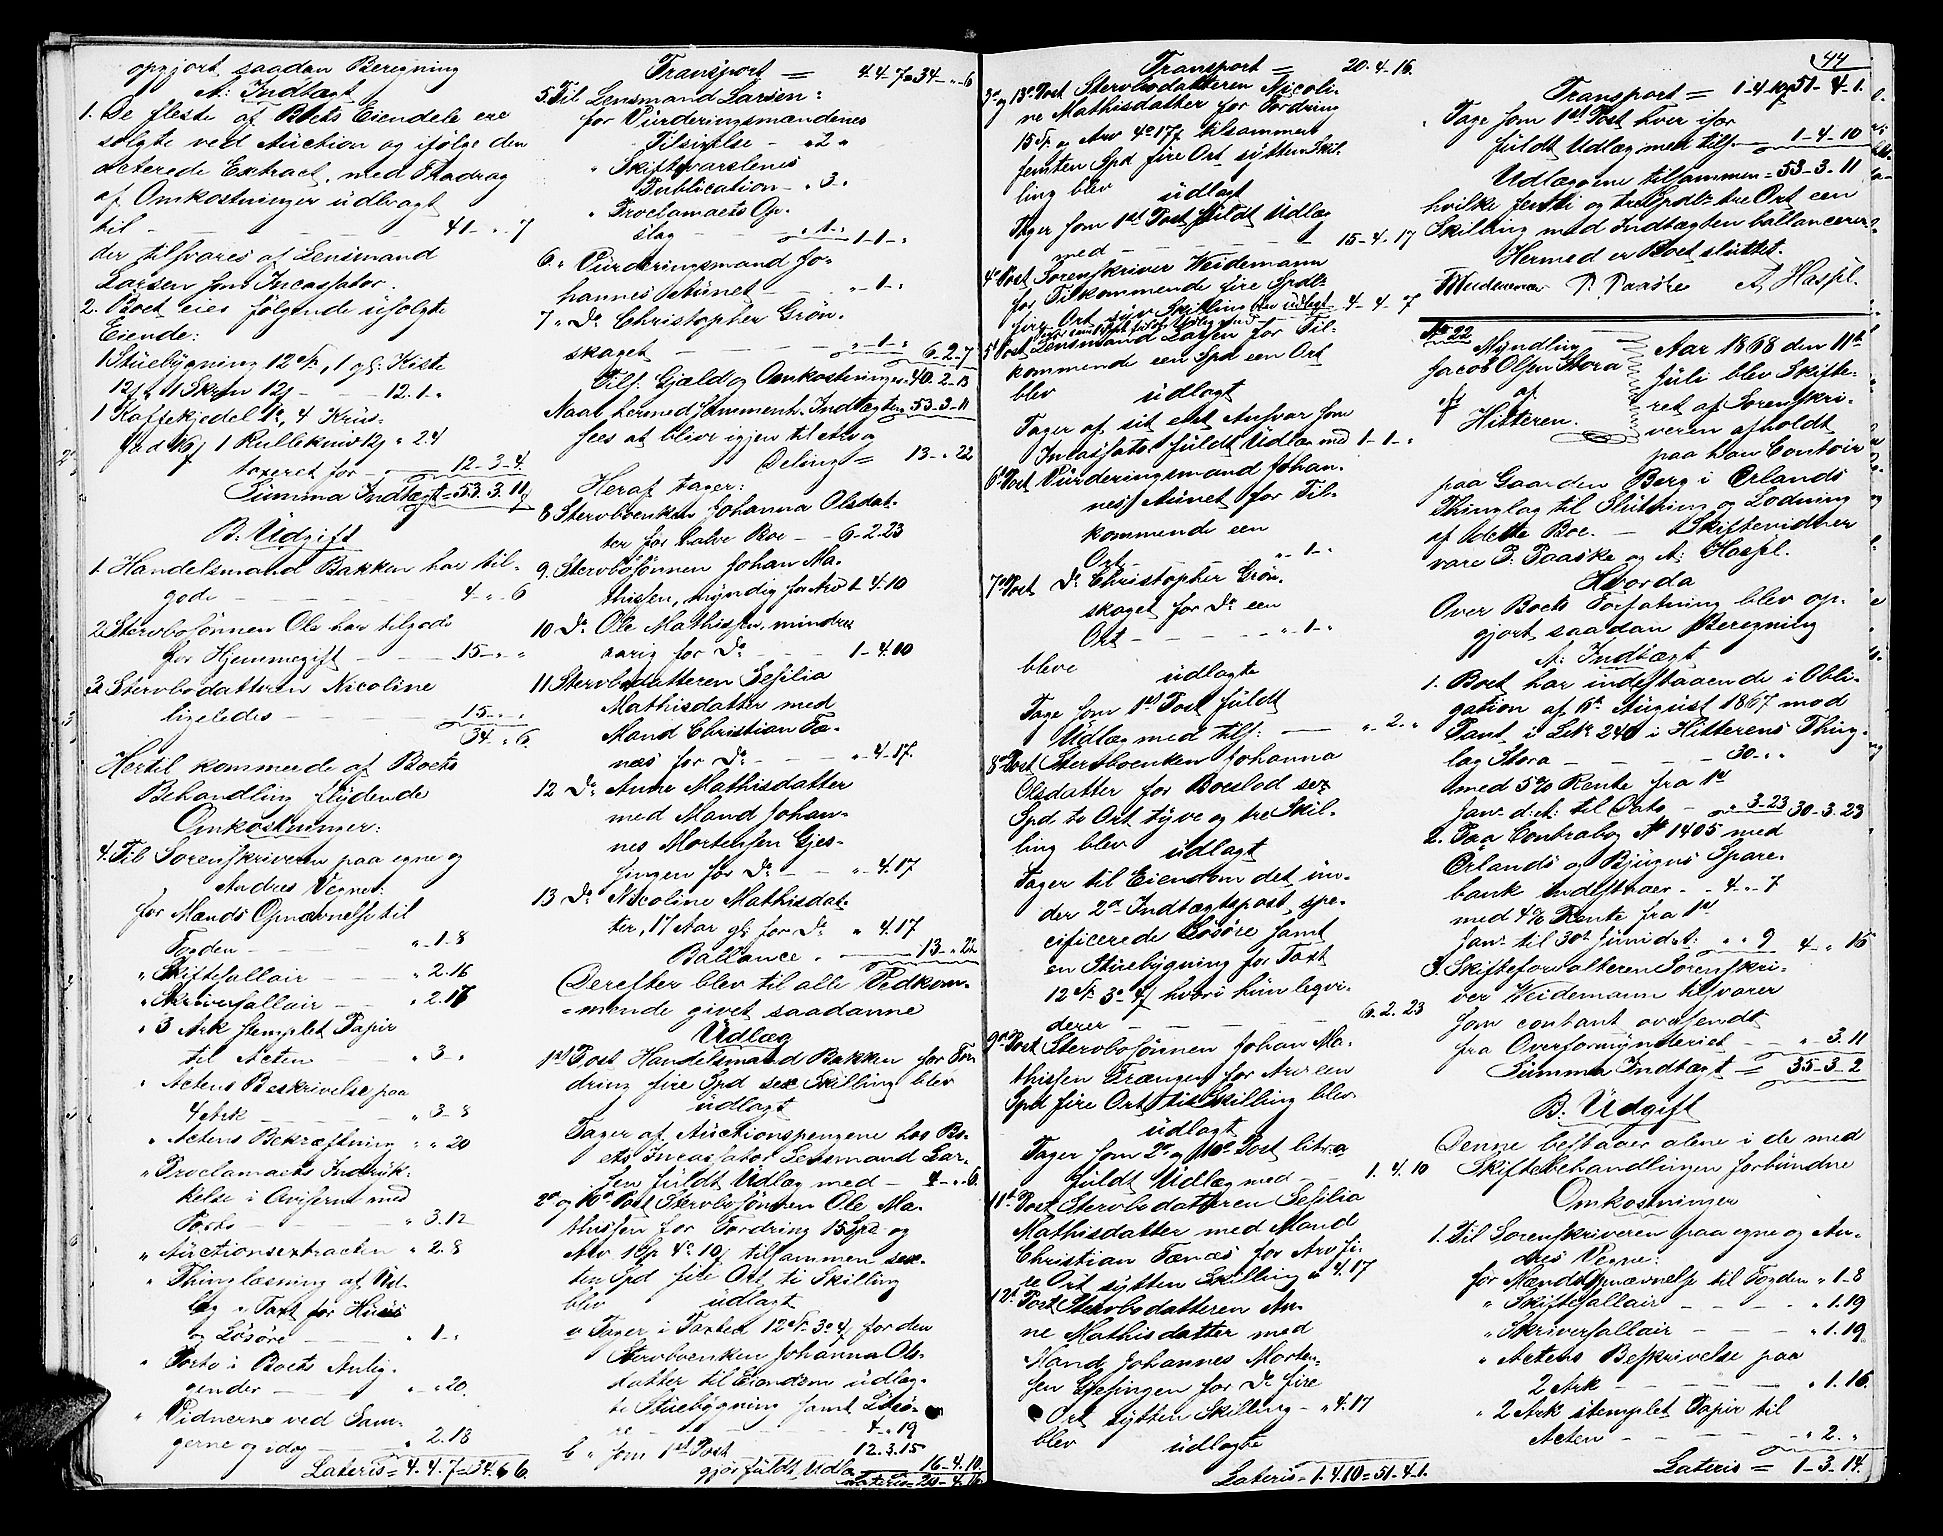 opgjort saadan Beregning
A. Indtægt
1. De fleste af Boets Eiendele ere
solgte ved Auction og ifølge den
acterede Extract, med Fradrag
af Omkostninger udbragt
til - - - 41 - „ - 7
der tilsvares af Lensmand
Larsen som Incassator.
2. Boet eies følgende usolgte
Eiende:
1 Stuebygning 12 Sp, 1 gl: Kiste
12 s, 1 Skrin 12 s - 12. 1. „
1 Kaffekjedel 1 o, 4 Krus-
fad 16 s 1 Rullekniv 12 s „ 2 4
taxeret for - 12 - 3 - 4.
Summa Indtægt = 53. 3. 11
B. Udgift
1. Handelsmand Bakken har til-
gode - - - 4 - „ - 6
2. Stervbosønnen Ole har tilgode
for Hjemmegift - - 15 - „ - „
3. Stervbodatteren Nicoline
ligeledes - - 15 - „ - „
34 - „ 6.
Hertil kommende af Boets
Behandling flydende
Omkostninger:
4. Til Sorenskriveren paa egne og
Andres Vegne:
for Mænds Opnævnelse til
Fogden - - „ - 1. 8
„ Skiftesallair - - „ 2. 16
„ Skriversallair - - „ 2. 16
„ 3 Ark stemplet Papir
til Acten - - „ 3 - „
„ Actens Beskrivelse paa
4 Ark - - „ 3 - 8
„ Actens Bekræftning „ „ 20
„ Proclamaets Indryk-
kelse i Aviserne med
Porto - - „ 3. 12
„ Auctionsextracten „ 2. 8
„ Thinglæsning af Ud-
læg „ Taxt for Huus
og Løsøre - - „ 1 - „
„ Porto i Boets Anlig-
gender - - „ - 20.
„ Vidnerne ved Sam-
gerne og idag - - „ 2. 18
Lateris = 4. 4. 7 = 34. „ 6
Transport = 4. 4 - 7 = 34 - „ - 6
5. Til Lensmand Larsen:
for Vurderingsmændenes
Tilsigelse - „ 2 „
„ Skiftevarslenes
Publication - „ 3 - „
„ Proclamaets Op-
slag - - „ 1. „ 1 - 1 - „
6. „ Vurderingsmand Jo-
hannes Aunet - - „ - 1 - „
7 „ Do Christopher Grøn-
skaget - - „ - 1 - „ 6 - 2 - 7
Tils. Gjæld og Omkostninger = 40. 2 - 13
Naar hermed sammenh. Indtægten 53 - 3 - 11
sees at blive igjen til Arv og
Deling = 13 - „ 22
Heraf tager:
8 Stervboenken Johanna Olsdat-
ter for halve Boe - - 6 - 2. 23
9. Stervbosønnen Johan Ma-
thissen, myndig for Arv 1 - 4. 10
10 Do Ole Mathissen, mindre
aarig for Do - - 1 - 4. 10
11 Stervbodatteren Sesilia
Mathisdatter med
Mand Christian Fæ-
næs for Do - - „ - 4 - 17.
12 Do Anne Mathisdatter
med Mand Johan-
nes Mortensen Gjes-
singen for Do - - „ - 4. 17
13 Do Nicoline Mathisdat-
ter, 17 Aar gl: for Do „ 4. 17
Ballance. - 13 - „ 22
Derefter blev til alle Vedkom-
mende givet saadanne
Udlæg
1ste Post Handelsmand Bakken for For-
dring fire Spd sex Skilling blev
udlagt
Tager af Auctionspengene hos Bo-
ets Incassator Lensmand Lar-
sen fuldt Udlæg med - 4 - „ 6.
2den og 10de Post Stervbosønnen Ole Ma-
thissen for Fordring 15 Spd og
Arv 1 Sp 4 o 10 s tilsammen sex-
ten Spd fire Ort ti Skilling
blev udlagt
a Tager i Taxten 12 Sp. 3 o 4 s for den
Stervboenken Johanna Ols-
datter til Eiendom udlag-
te Stuebygning samt Løsø-
re - - 4 - 19
b „ som 1ste Post 12. 3. 15
gjør fuldt Udlæg 16 - 4. 10
Lateris = 20 - 4. 16
Transport = 20 - 4 - 16.
3die og 13de Post Stervbodatteren Nicoli-
ne Mathisdatter for Fordring
15 Sp. og Arv 4 o 17 s tilsammen
femten Spd fire Ort sytten Skil-
ling blev udlagt
Tager som 1ste Post fuldt Udlæg
med - - - 15 - 4. 17
4de Post Sorenskriver Weidemann
for Tilkommende fire Spd
fire Ort syv Skilling blev udlagt 4 - 4 - 7
Tager som 1ste Post fuldt Udlæg med
5te Post Lensmand Larsen for Til-
kommende een Spd een Ort
blev udlagt
Tager af sit eget Ansvar som
Incassator fuldt Udlæg med 1 - 1 - „
6te Post Vurderingsmand Johan-
nes Aunet for Til-
kommende een
Ort - - „ - 1 - „
7de Post Do Christopher Grøn-
skaget for Do een
Ort - - „ - 1 - „
bleve udlagte
Tage som 1ste Post fuldt
Udlæg med tils: - „ 2. „
8de Post Stervboenken Johanna
Olsdatter for Boeslod sex
Spd to Ort tyve og tre Skil-
ling blev udlagt
Tager til Eiendom det un-
der 2den Indtægtspost spe-
cificerede Løsøre samt
en Stuebygning for Taxt
12 Sp. 3 o 4 s hvori hun legvi-
derer - - - 6. 2. 23
9de Post Stervbosønnen Johan Ma-
thissen Trængen for Arv een
Spd fire Ort ti Skilling blev
udlagt
Tager som 2den og 10de Post litr. a
fuldt Udlæg med - - 1. 4. 10
11te Post Stervbodatteren Sesilia
Mathisdatter med Mand
Christian Fænæs for Arv fi-
re Ort sytten Skilling „ 4. 17
12te Post Stervbodatteren An-
ne Mathisdatter med
Mand Johannes Morten-
sen Gjesingen for Do fire
Ort sytten Skilling - „ 4. 17
blev udlagte
Lateris = 1. 4. 10 = 51 - 4 - 1.
44
Transport = 1 - 4 - 10 = 51 - 4 - 1.
Tage som 1ste Post hver især
fuldt Udlæg med tils. - 1 - 4 - 10
Udlæggene tilsammen = 53 - 3 - 11
hvilke femti og tre Spd tre Ort een
Skilling med Indtægten ballancerer
Hermed er Boet sluttet.
Weidemann P. Paaske A. Hassel.
No 22
Myndling
Jacob Olsen Stora
af
Hitteren.
Aar 1868 den 11te
Juli blev Skifte-
ret af Sorenskri-
veren afholdt
paa han Contoir
paa Gaarden Berg i Ørlands
Thinglag til Slutning og Lodning
af dette Boe. - Skiftevidner
vare P. Paaske og A: Hassel.
Hvorda
Over Boets Forfatning blev op-
gjort saadan Beregning
A: Indtægt
1. Boet har indestaaende i Obli-
gation af 6te August 1867 mod
Pant i Lib. 240 i Hitterens Thing-
lag Stora - - 30 - „ „
med 5% Rente fra 1ste
Jan. d: A: til Dato - „ 3. 23 30 - 3. 23
2. Paa Contrabog No 1405 med
Ørlands og Bjugns Spare-
bank indestaaer - - 4 - „ - 7
med 4% Rente fra 1ste
Jan. til 30te Juni d. A: „ „ 9 4 - „ 16
3. Skifteforvalteren Sorenskri-
ver Weidemann tilsvarer
som contant oversendt
fra Overformynderiet - - „ - 3. 11
Summa Indtægt = 35 - 3 - 2
B. Udgift
Denne bestaaer alene i de med
Skiftebehandlingen forbundne
Omkostninger
1. Til Sorenskriveren paa egne og An-
dres Vegne:
for Mænds Opnævnelse til Fogden „ 1 - 8
„ Skiftesallair - - „ 1. 19
„ Skriversallair - - „ 1. 19
„ Actens Beskrivelse paa
2 Ark - - „ 1. 16.
„ 2 Ark stemplet Papir til
Acten - - „ 2. „
Lateris = 1 - 3 - 14.